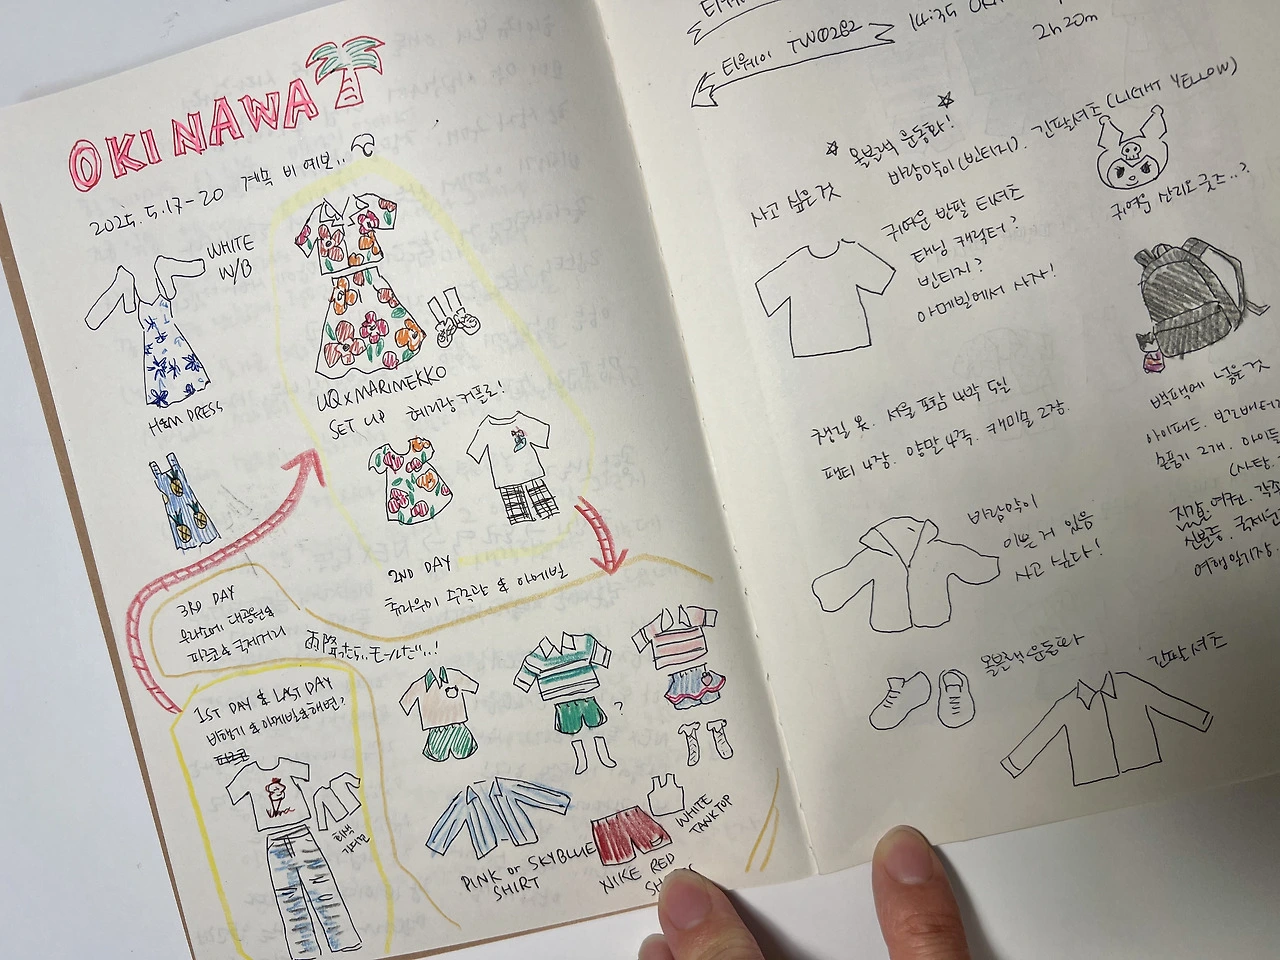 OKINAWA
2025.5.17-20 계속 비 예보..
WHITE
W/B
H&M DRESS
UQ x MARIMEKKO
SET UP 혜리랑 커플로!
2ND DAY
츄라우미 수족관 & 아메빌
3RD DAY
파르코 & 국제거리
雨降ったら..モールだ..!
1ST DAY & LAST DAY
비행기 & 아메빌 & 해변?
흰색
가디건
?
PINK or SKYBLUE
SHIRT
NIKE RED
WHITE
TANKTOP
티웨이 TW0282
14:35
2h20m
사고 싶은 것
올블랙 운동화!
바람막이 (빈티지). 긴팔셔츠 (LIGHT YELLOW)
귀여운 반팔 티셔츠
태닝 캐릭터?
빈티지?
아메빌에서 사자!
귀여운 산리오 굿즈..?
챙길 옷. 서울 포함 4박 5일
팬티 4장. 양말 4족. 캐미솔 2장.
바람막이
이쁜 거 있음
사고 싶다!
백팩에 넣을 것
아이패드. 보조배터리
손풍기 2개.
(사탕.
여권.
여행일기장.
올블랙 운동화
긴팔셔츠